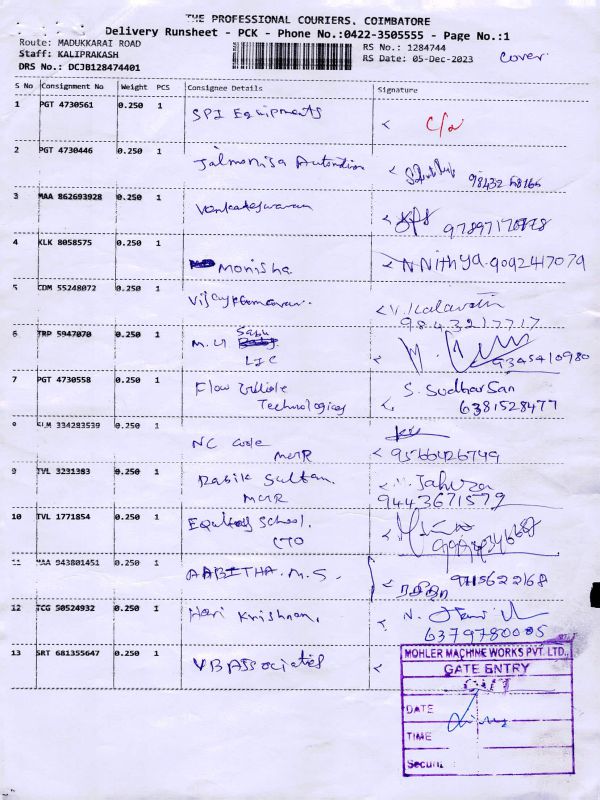 THE PROFESSIONAL COURIERS, COIMBATORE
Delivery Runsheet - PCK - Phone No.:0422-3505555 - Page No.:1
Route: MADUKKARAI ROAD
RS No.: 1284744
Staff: KALIPRAKASH
RS Date: 05-Dec-2023
cover
DRS No.: DCJB128474401
S No Consignment No Weight PCS Consignee Details Signature
1 PGT 4730561 0.250 1 SPI Equipments
2 PGT 4730446 0.250 1
3 MAA 862693928 0.250 1 Venkateswaran
4 KLK 8058575 0.250 1 Monisha N Nithya 9092417079
5 CDM 55248072 0.250 1 V. Kalavathi
9843217717
6 TRP 5947070 0.250 1 M.U Sabu
LIC 9345410980
7 PGT 4730558 0.250 1 Flow S. Sudharsan
Technologies 6381528477
8 SLM 334283539 0.250 1 NC code
MCR 9566426749
9 TVL 3231383 0.250 1 Rasik Sultan.
MCR 9443671579
10 TVL 1771854 0.250 1 School.
CTO
11 MAA 943801451 0.250 1 AABITHA.M.S. 9715622168
12 TCG 50524932 0.250 1 Hari Krishnan.
6379780005
13 SRT 681355647 0.250 1 VB Associaties
MOHLER MACHINE WORKS PVT. LTD.,
GATE ENTRY
OUT
DATE
TIME